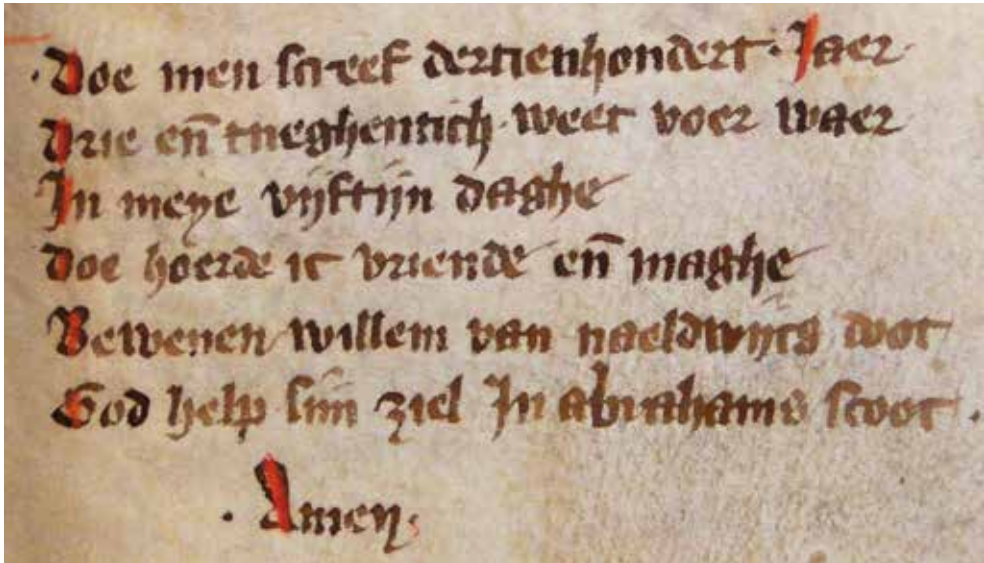 · Doe men screef dertienhondert · Jaer
Drie en̄ tneghentich · weet voer waer
In meye vijftijn daghe
Doe hoerde ic vriende en̄ maghe
Bewenen willem van naeldwijcs doot
God help sijn ziel In abrahams scoot ·
· Amen ·